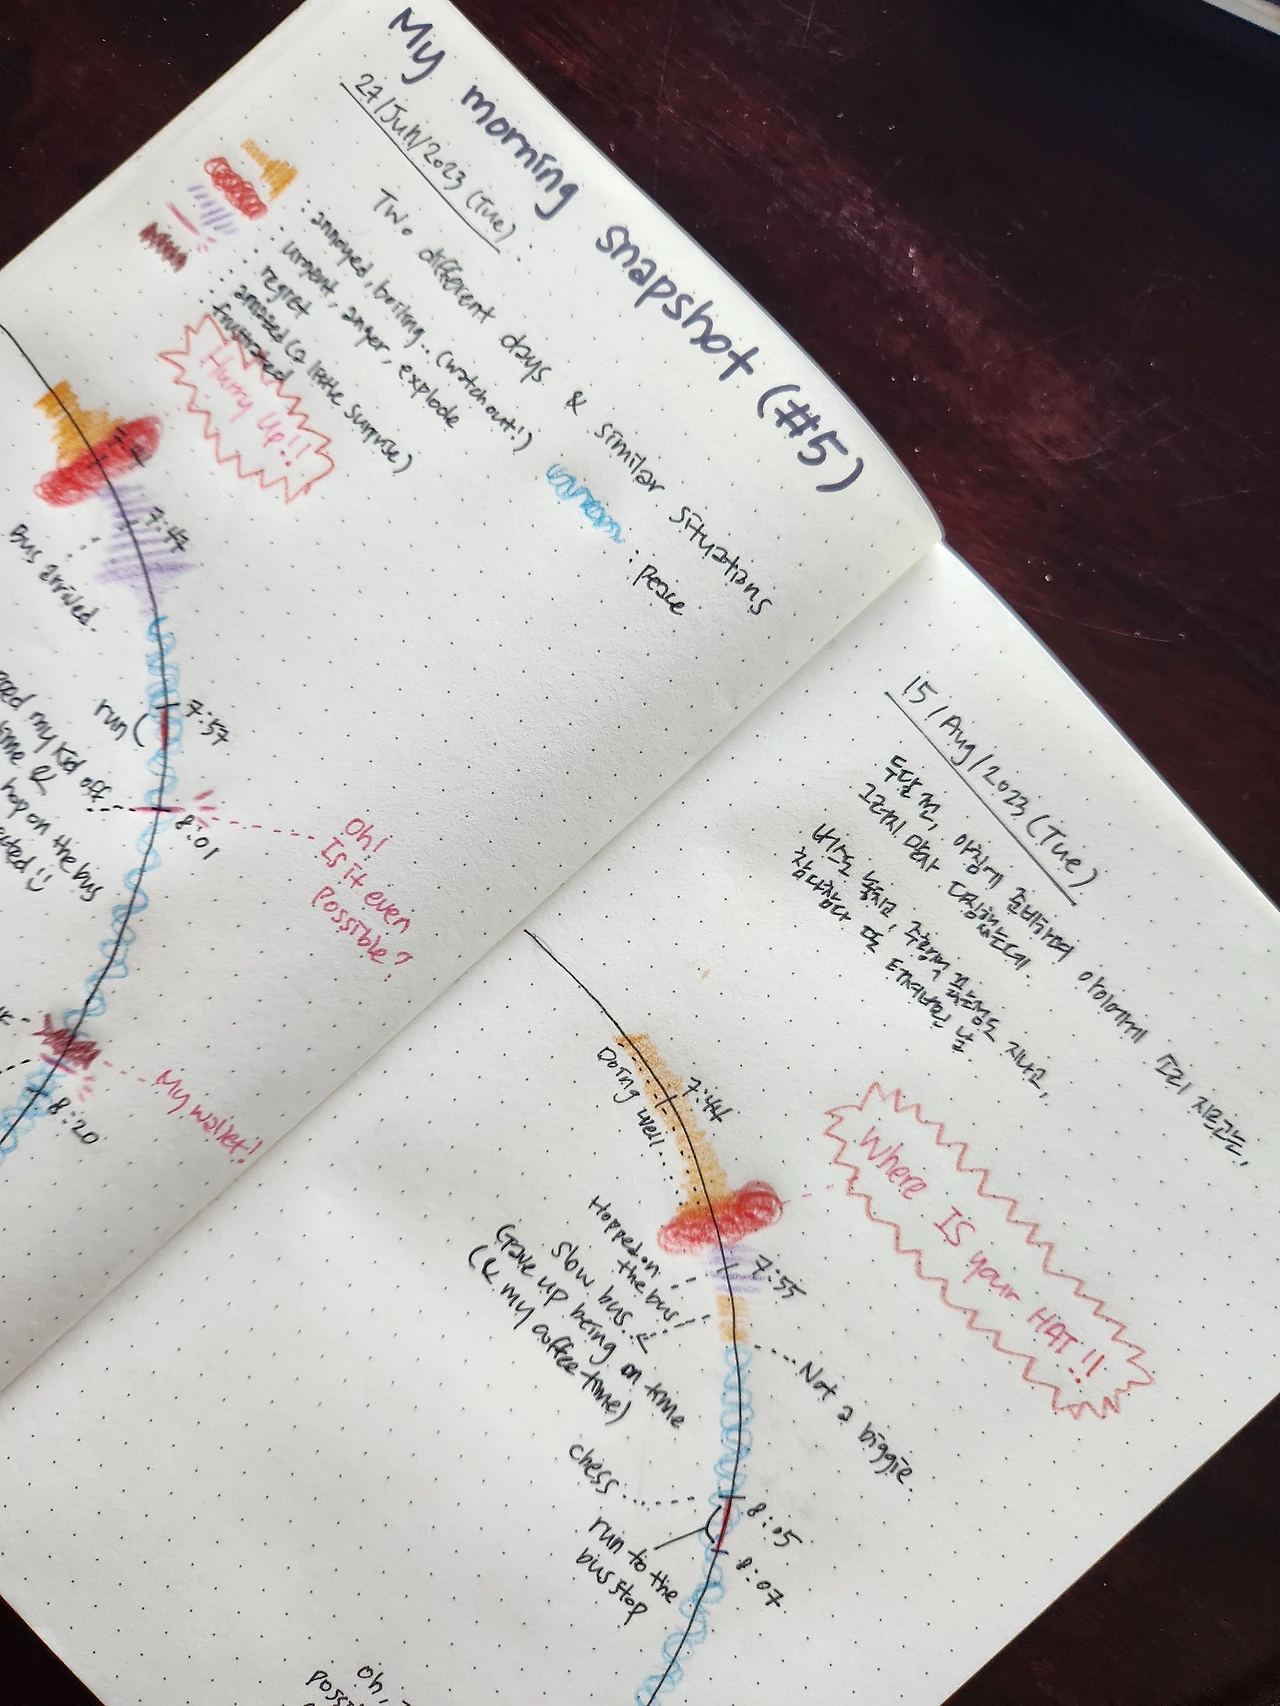 My morning snapshot (#5)
27/Jun/2023 (Tue)
Two different days & similar situations
: annoyed, boiling.. (watch out!)
: urgent, anger, explode
: regret
: amazed (a little surprise)
: frustrated
: peace
Hurry Up!!
7:47
Bus arrived.
run
7:57
my kid off
time &
hop on the bus
8:01
Oh!
Is it even
possible?
My wallet!
8:20
15/Aug/2023 (Tue)
두달 전, 아침에 준비하며 아이에게 소리 지르고는,
그러지 말자 다짐했는데
버스도 놓치고, 주황색 끓는점도 지나고,
참다참다 또 터져버린 날
Doing well...
7:44
Where Is your HAT!!
Hopped on
the bus!
7:55
slow bus..
Gave up being on time
(& my coffee time)
Not a biggie.
chess
8:05
run to the
bus stop
8:07
Oh,